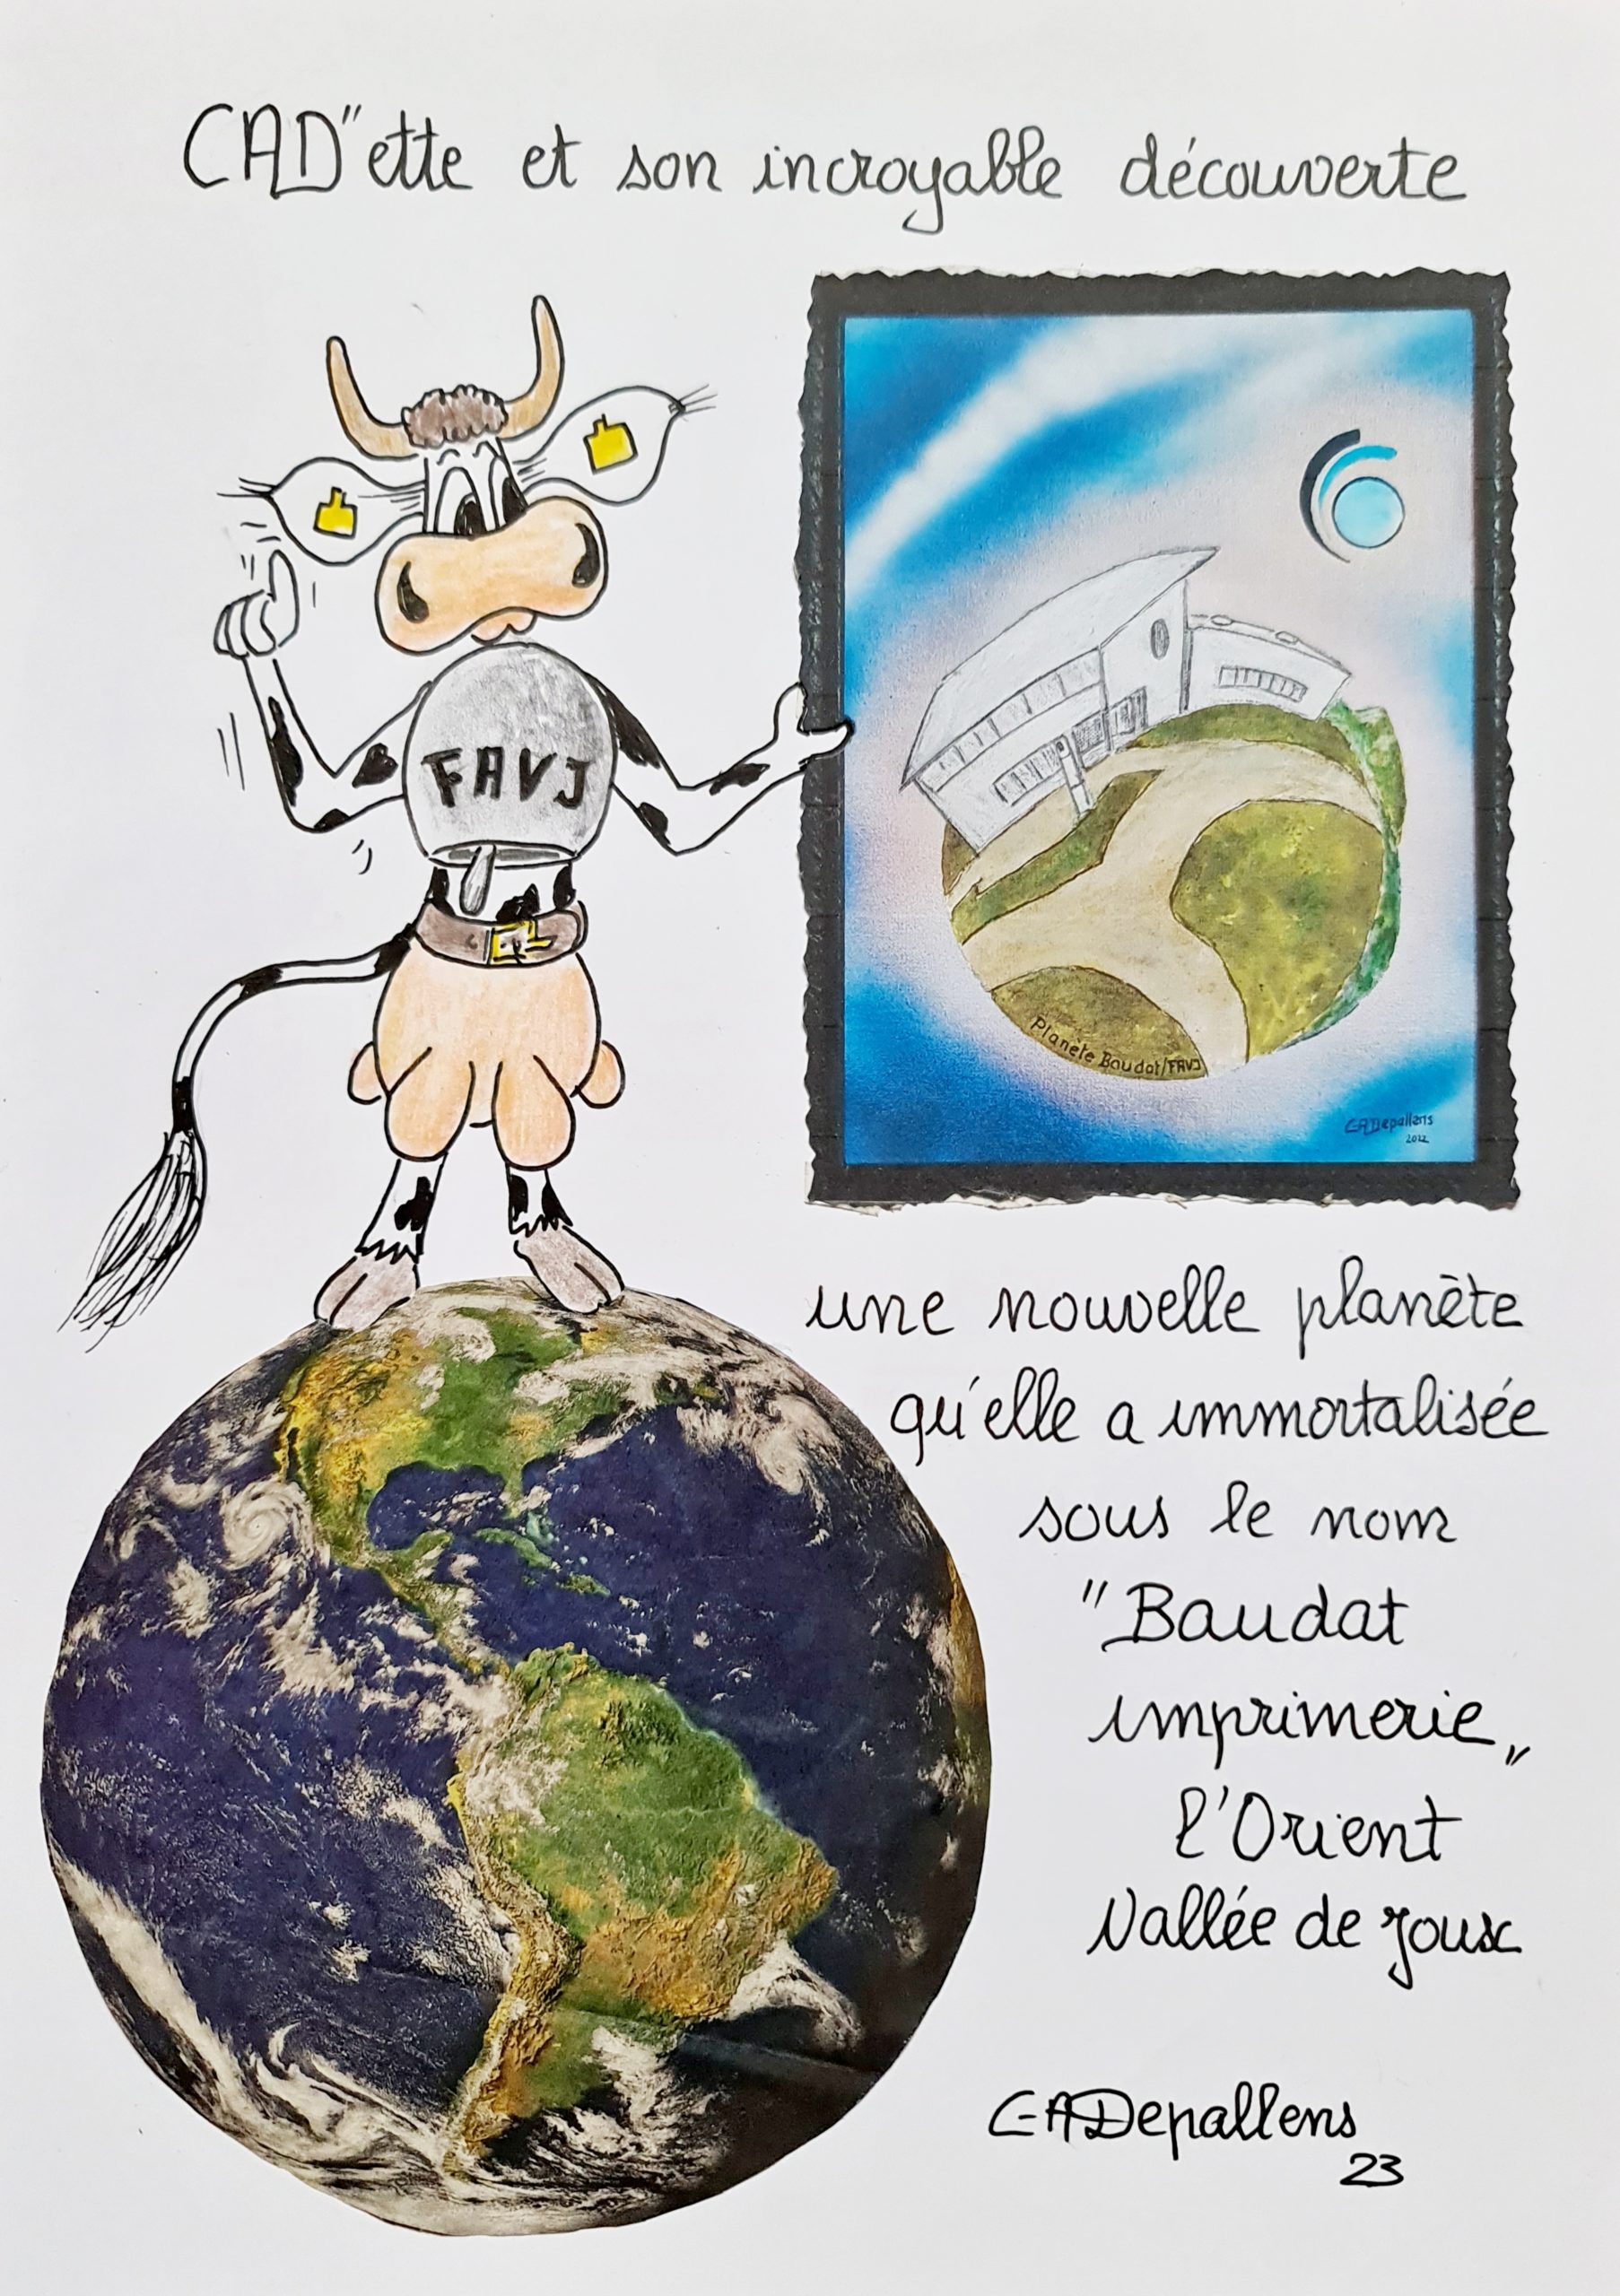 CAD"ette et son incroyable découverte
FAVJ
Planète Baudat/FAVJ
CADepallens
2022
une nouvelle planète
qu'elle a immortalisée
sous le nom
"Baudat
imprimerie„
l'Orient
Vallée de Joux
C-ADepallens
23